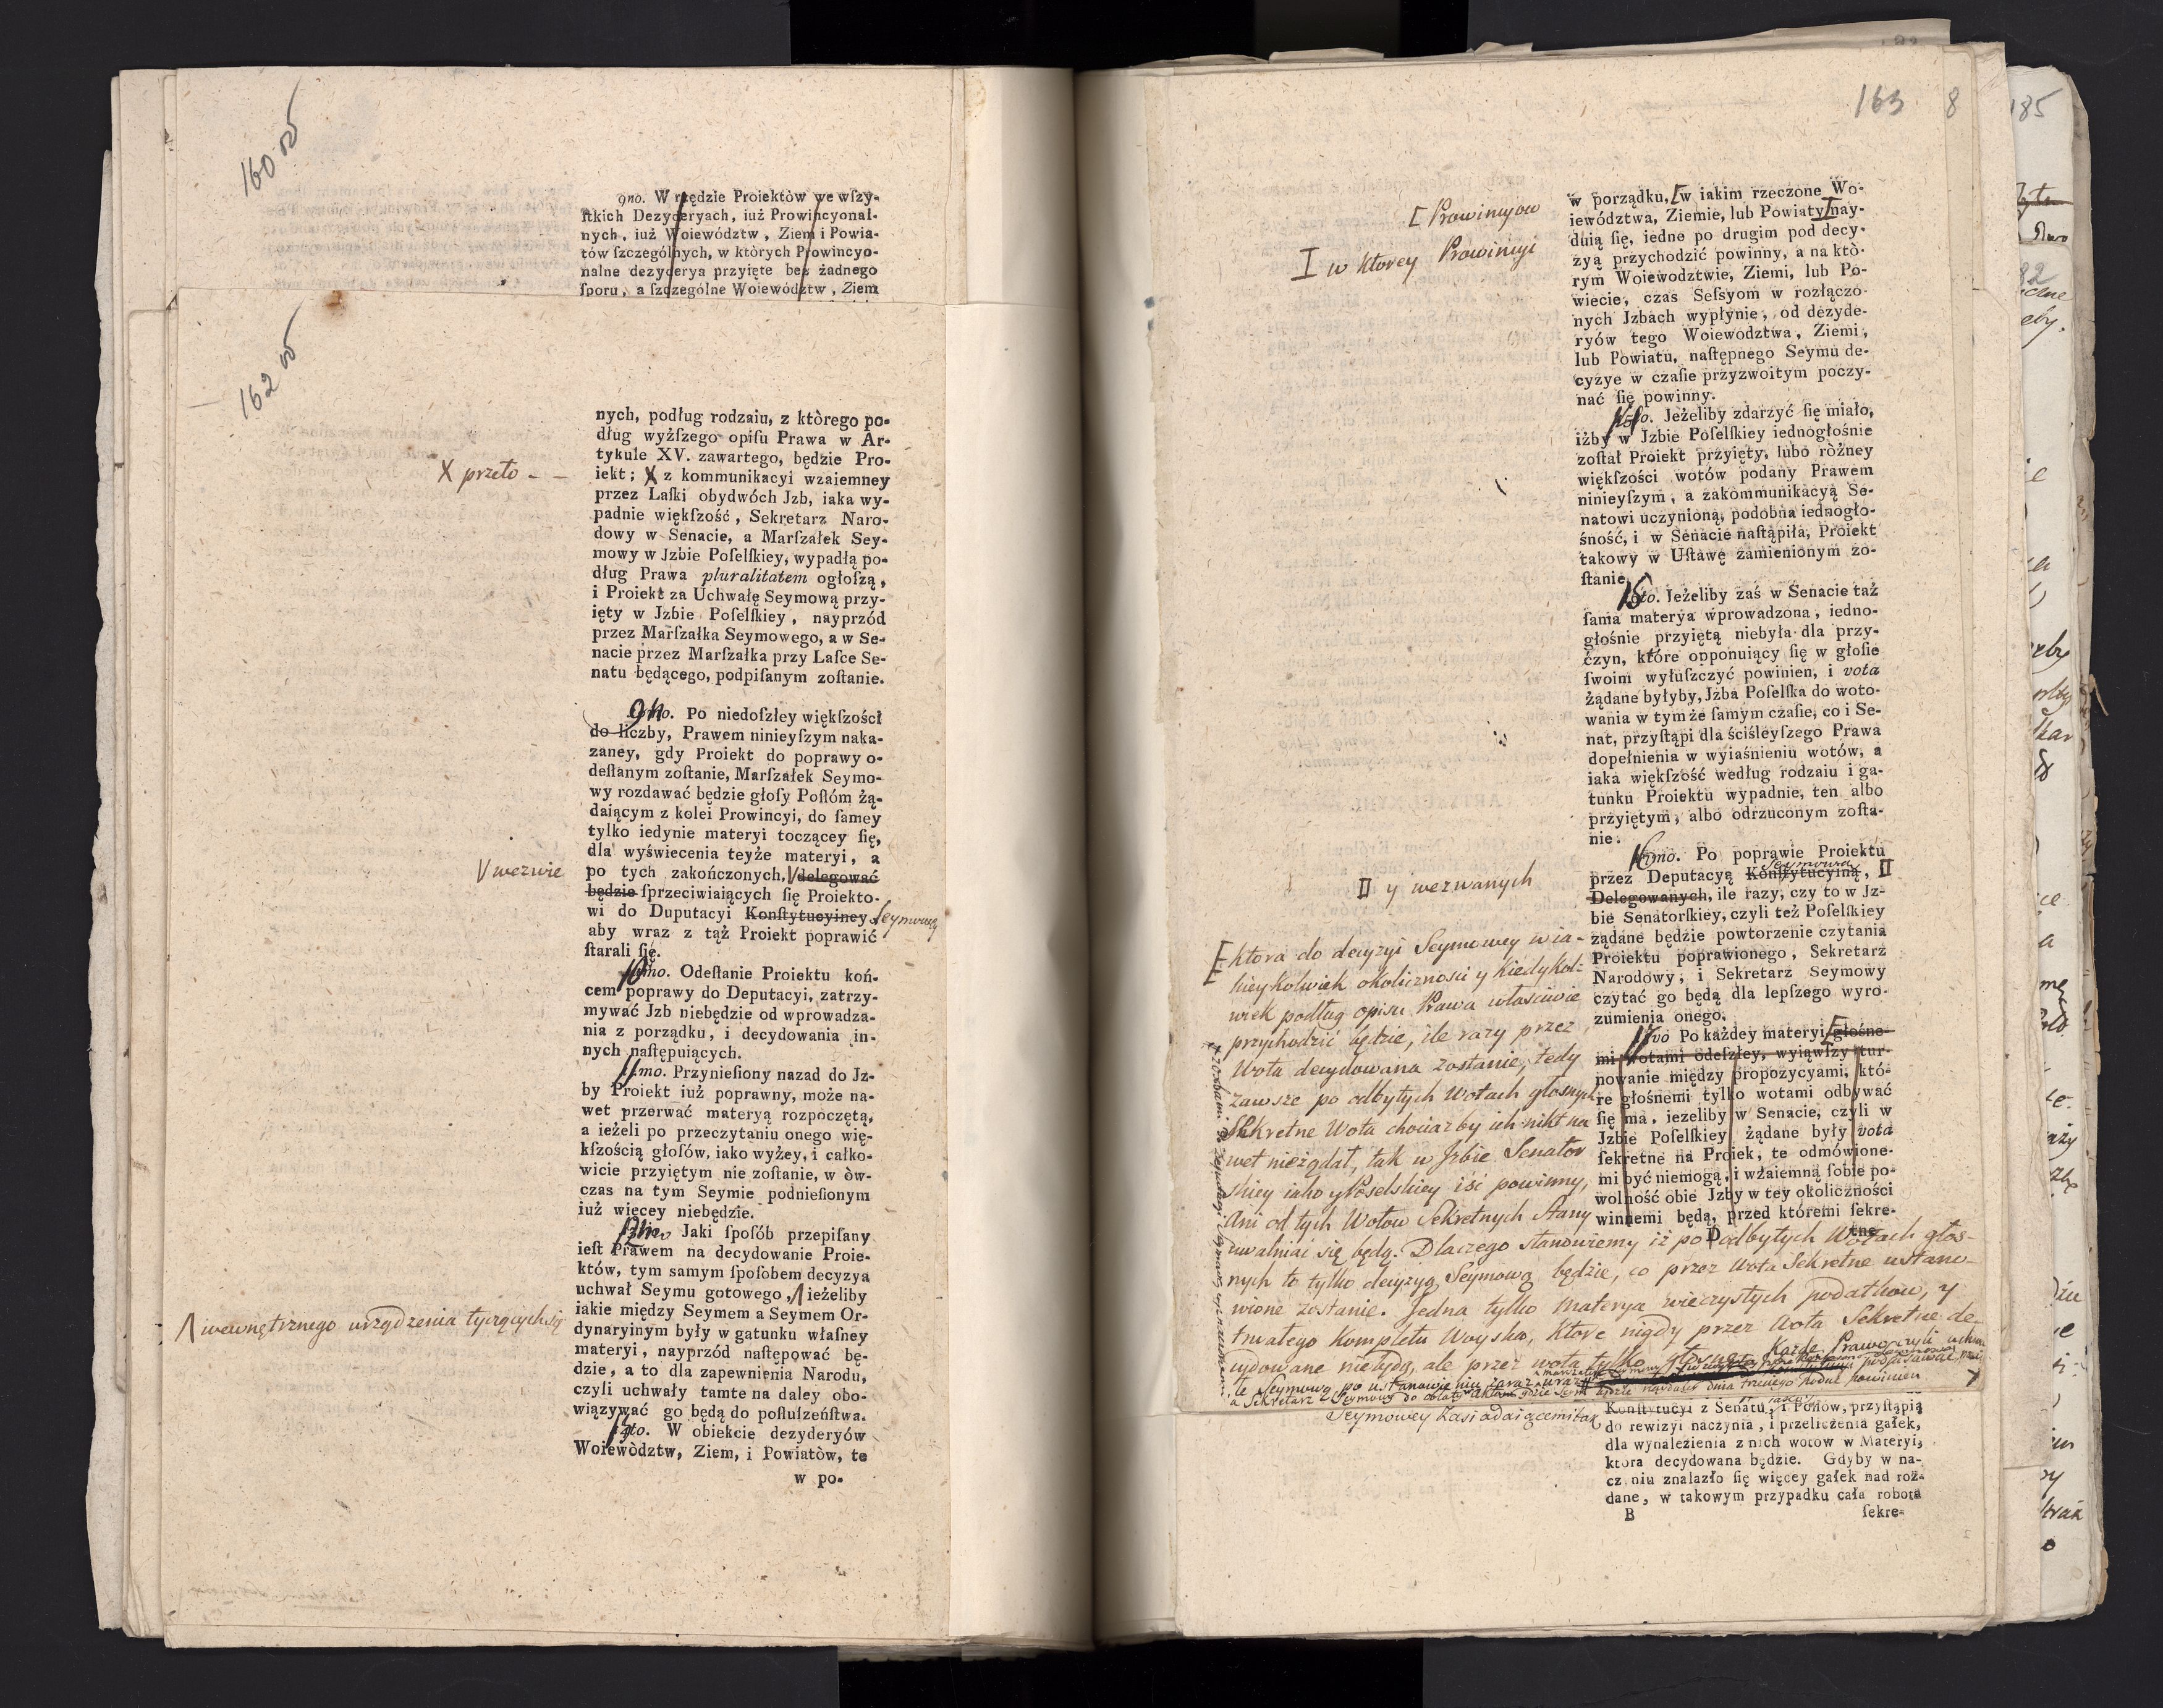 160 v
9no. W rzędzie Proiektòw we wſzy-
ſtkich Dezyderyach, iuż Prowincyonal-
nych, iuż Woiewództw, Ziem i Powia-
tów ſzczególnych, w których Prowincyo-
nalne dezyderya przyięte bez żadnego
ſporu, a ſzczególne Woiewództw, Ziem
162 v
nych, podług rodzaiu, z którego po-
dług wyżſzego opiſu Prawa w Ar-
tykule XV. zawartego, będzie Pro-
X przeto - -
iekt; X z kommunikacyi wzaiemney
przez Laſki obydwóch Jzb, iaka wy-
padnie więkſzość, Sekretarz Naro-
dowy w Senacie, a Marſzałek Sey-
mowy w Jzbie Poſelſkiey, wypadłą po-
dług Prawa pluralitatem ogłoſzą,
i Proiekt za Uchwałę Seymową przy-
ięty w Jzbie Poſelſkiey, nayprzód
przez Marſzałka Seymowego, a w Se-
nacie przez Marſzałka przy Laſce Se-
natu będącego, podpiſanym zoſtanie.
9no. Po niedoſzłey więkſzości
do liczby, Prawem ninieyſzym naka-
zaney, gdy Proiekt do poprawy o-
deſłanym zoſtanie, Marſzałek Seymo-
wy rozdawać będzie głoſy Poſłóm żą-
daiącym z kolei Prowincyi, do ſamey
tylko iedynie materyi toczącey ſię,
dla wyświecenia teyże materyi, a
V wezwie
po tych zakończonych, V delegować
będzie ſprzeciwiaiących ſię Proiekto-
wi do Duputacyi Konſtytucyiney Seymowey
aby wraz z tąż Proiekt poprawić
ſtarali ſię.
10mo. Odeſłanie Proiektu koń-
cem poprawy do Deputacyi, zatrzy-
mywać Jzb niebędzie od wprowadza-
nia z porządku, i decydowania in-
nych naſtępuiących.
11mo. Przynieſiony nazad do Jz-
by Proiekt iuż poprawny, może na-
wet przerwać materyą rozpoczętą,
a ieżeli po przeczytaniu onego wię-
kſzością głoſów, iako wyżey, i całko-
wicie przyiętym nie zoſtanie, w òw-
czas na tym Seymie podnieſionym
iuż więcey niebędzie.
12 Jaki ſpoſób przepiſany
ieſt Prawem na decydowanie Proie-
któw, tym samym ſpoſobem decyzya
uchwał Seymu gotowego, Λ ieżeliby
Λ wewnętrznego urządzenia tyczących się
iakie między Seymem a Seymem Or-
dynaryinym były w gatunku właſney
materyi, nayprzód naſtępować bę-
dzie, a to dla zapewnienia Narodu,
czyli uchwały tamte na daley obo-
wiązywać go będą do poſłuſzeńſtwa.
13to. W obiekcie dezyderyów
Woiewòdztw, Ziem, i Powiatòw, te
w po-
163 8
[ Prowincyow
I w ktorey Prowincyi
w porządku, [w iakim rzeczone Wo-
iewództwa, Ziemie, lub Powiaty I nay-
duią ſię, iedne po drugim pod decy-
zyą przychodzić powinny, a na któ-
rym Woiewodztwie, Ziemi, lub Po-
wiecie, czas Seſsyom w rozłączo-
nych Jzbach wypłynie, od dezyde-
ryów tego Woiewództwa, Ziemi,
lub Powiatu, naſtępnego Seymu de-
cyzye w czaſie przyzwoitym poczy-
nać ſię powinny.
Jeżeliby zdarzyć ſię miało,
iżby w Jzbie Poſelſkiey iednogłośnie
zoſtał Proiekt przyięty, lubo różney
więkſzości wotów podany Prawem
ninieyſzym, a zakommunikacyą Se-
natowi uczynioną, podobna iednogło-
śność, i w Senacie naſtąpiła, Proiekt
takowy w Uſtawę zamienionym zo-
ſtanie.
15to. Jeżeliby zaś w Senacie taż
ſama materya wprowadzona, iedno-
głośnie przyiętą niebyła dla przy-
czyn, które opponuiący ſię w głoſie
ſwoim wyłuſzczyć powinien, i vota
żądane byłyby, Jzba Poſelſka do woto-
wania w tymże ſamym czaſie, co i Se-
nat, przyſtąpi dla ściśleyſzego Prawa
dopełnienia w wyiaśnieniu wotów, a
iaka więkſzość według rodzaiu i ga-
tunku Proiektu wypadnie, ten albo
przyiętym, albo odrzuconym zoſta-
nie.
16mo. Po poprawie Proiektu
Seymową
przez Deputacyą Konſtytucyiną, II
II y wezwanych
Delegowanych, ile razy, czy to w Jz-
bie Senatorſkiey, czyli też Poſelſkiey
żądane będzie powtorzenie czytania
Proiektu poprawionego, Sekretarz
Narodowy, i Sekretarz Seymowy
czytać go będą dla lepſzego wyro-
zumienia onego.
17vo Po każdey materyi [głośne-
mi wotami odeſzłey, wyiąwſzy tur-
nowanie między propozycyami, któ-
re głośnemi tylko wotami odbywać
ſię ma, iezeliby w Senacie, czyli w
Jzbie Poſelſkiey żądane były vota
ſekretne na Proiek, te odmówione-
mi być niemogą, i wzaiemną ſobie po-
wolność obie Jzby w tey okoliczności
winnemi będą, przed któremi ſekre-
tne
[ ktora do decyzyi Seymowey w ia-
kieykolwiek okoliczności y kiedykol-
wiek podług opisu Prawa właściwie
przychodzić będzie, ile razy przez
Wota decydowana zostanie, tedy
zawsze po odbytych Wotach głosnych
Sekretne Wota chociażby ich nikt na
wet nieżądał, tak w Jzbie Senator
skiey iako y Poselskiey iść powinny,
Ani od tych Wotow Sekretnych Stany
uwalniać się będą. Dlaczego stanowiemy iż po odbytych Wotach głos-
nych to tylko decyzyą Seymową będzie, co przez Wota Sekretne ustano-
wione zostanie. Jedna tylko Materya wieczystych podatkow, y
trwałego Kompletu Woyska, ktore nigdy przez Wota Sekretne de-
cydowane niebędą, ale przez wota tylko głosne. Każde Prawo czyli uchwa
łę Seymową po ustanowieniu zaraz
a Sekretarz Seymowy do oblaty dnia trzeciego podać powinien
Seymowey Zasiadaiącemi tak
Konſtytucyi z Senatu, i Poſłów, przyſtąpią
do rewizyi naczynia, i przeliczenia gałek,
dla wynalezienia z nich wotow w Materyi,
ktora decydowana będzie. Gdyby w na-
czyniu znalazło ſię więcey gałek nad roz-
dane, w takowym przypadku cała robota
B ſekre-
185